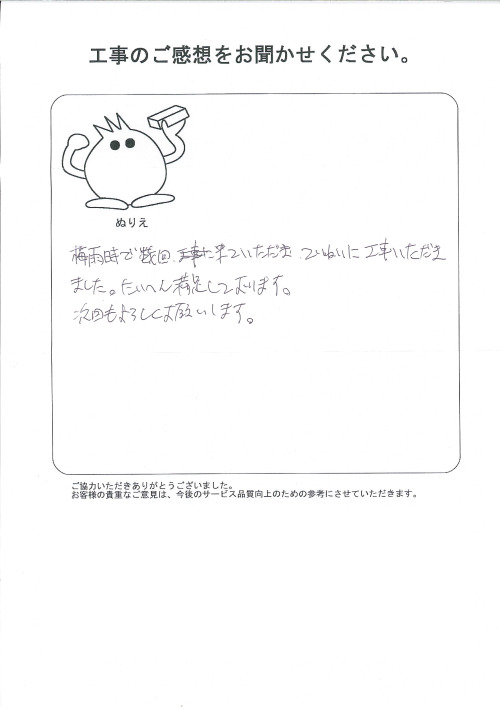 工事のご感想をお聞かせください。
ぬりえ
梅雨時で幾回、工事に来ていただき、ていねいに工事いただき
ました。たいへん満足しております。
次回もよろしくお願いします。
ご協力いただきありがとうございました。
お客様の貴重なご意見は、今後のサービス品質向上のための参考にさせていただきます。